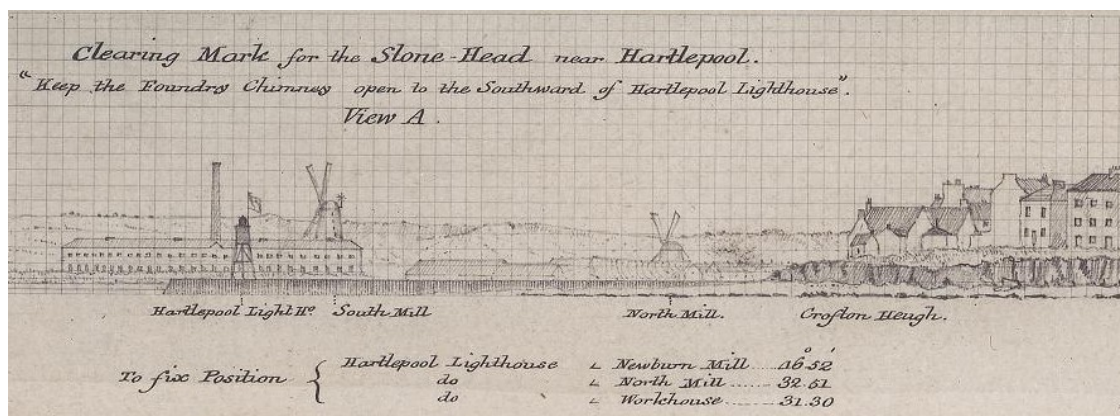 Clearing Mark for the Stone-Head near Hartlepool.
"Keep the Foundry Chimney open to the Southward of Hartlepool Lighthouse".
View A.
Hartlepool Light Ho. South Mill North Mill. Crofton Heugh.
To fix Position { Hartlepool Lighthouse ∠ Newburn Mill ..... 46° 52'
do ∠ North Mill ...... 32. 51
do ∠ Workhouse ...... 31. 30